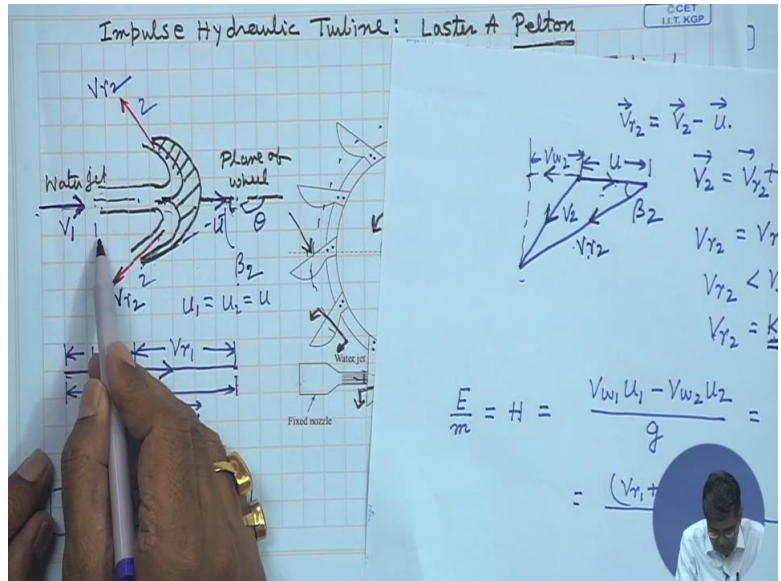 Impulse Hydraulic Turbine: Laster A Pelton
©CET
I.I.T. KGP
Vr2
2
Water jet
V1
1
Plane of
wheel
-u
θ
β2
2
Vr2
U1 = U2 = U
Vr1
Water jet
Fixed nozzle
→Vr2 = →V2 - →u.
Vw2
U
→V2 = →Vr2 +
V2
β2
Vr2
Vr2 = Vr
Vr2 < V
Vr2 = K
E/m = H = (Vw1 U1 - Vw2 U2)/g =
= (Vr1 +